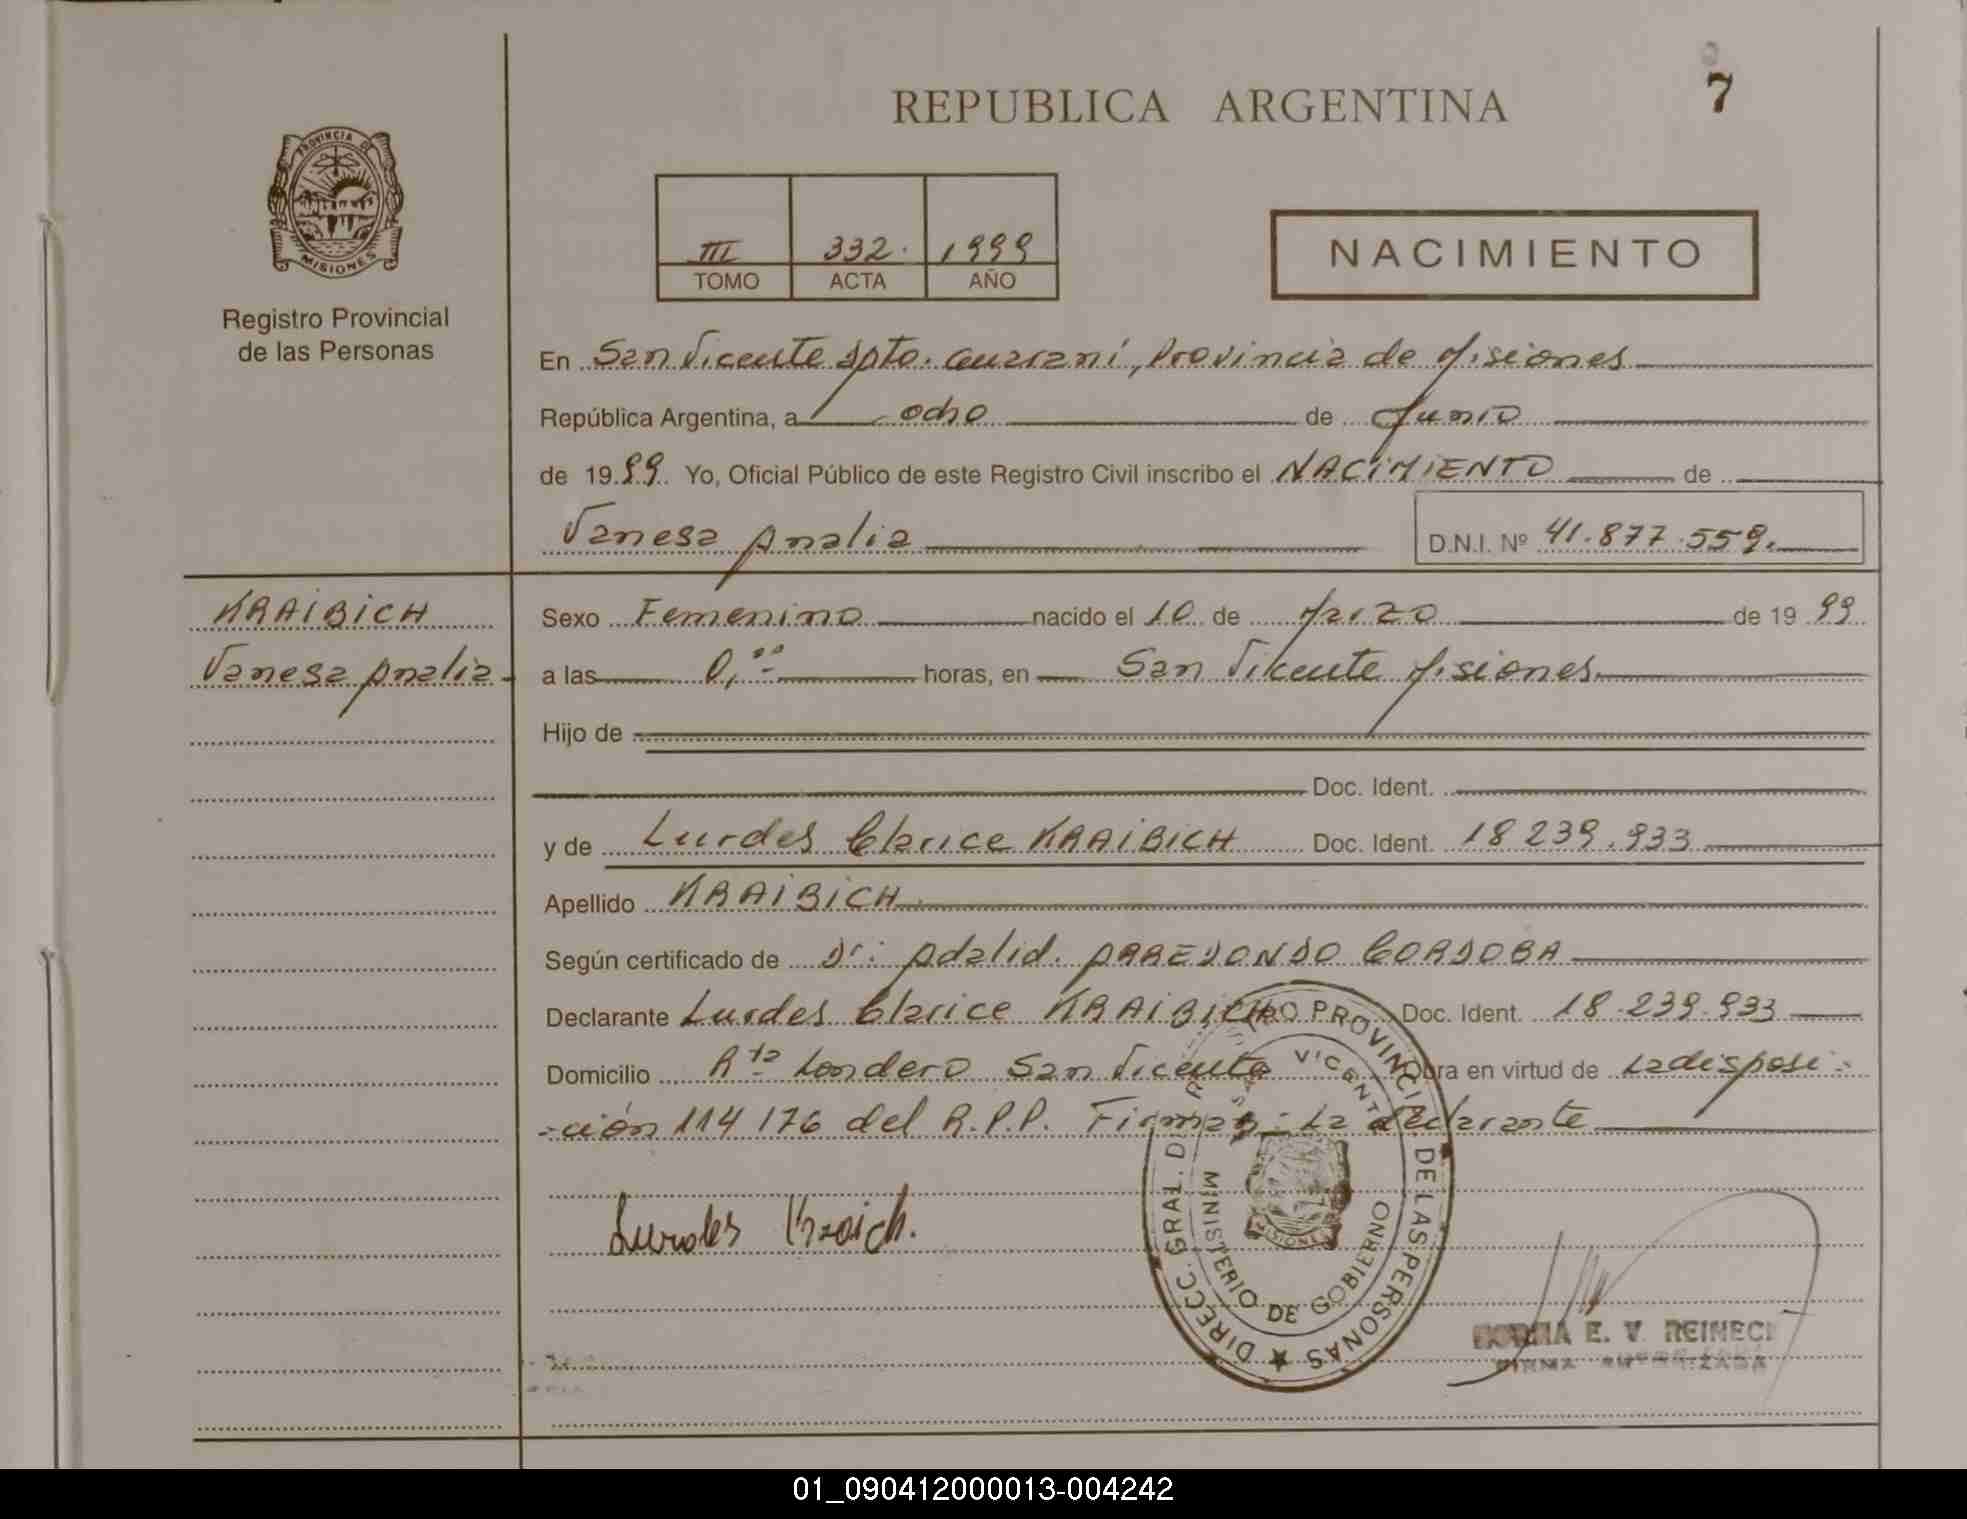 REPUBLICA ARGENTINA
7
PROVINCIA DE
MISIONES
Registro Provincial
de las Personas
III 332. 1999
TOMO ACTA AÑO
NACIMIENTO
En San Vicente Dpto. Guaraní, Provincia de Misiones
República Argentina, a ocho de Junio
de 1999. Yo, Oficial Público de este Registro Civil inscribo el NACIMIENTO de
Vanesa Analia
D.N.I. Nº 41.877.559.
KRAIBICH
Vanesa Analia
Sexo Femenino nacido el 10 de Marzo de 1999
a las 0,00 horas, en San Vicente Misiones
Hijo de
Doc. Ident.
y de Lurdes Clarice KRAIBICH Doc. Ident. 18 239.933
Apellido KRAIBICH
Según certificado de Dr. Adalid. ARREDONDO CORDOBA
Declarante Lurdes Clarice KRAIBICH Doc. Ident. 18.239.933
Domicilio Rta Londero San Vicente Obra en virtud de La disposi-
-ción 114/76 del R.P.P. Firman: La declarante
Lurdes
DIRECC. GRAL. DEL REGISTRO PROVINCIAL DE LAS PERSONAS
SAN VICENTE
MISIONES
MINISTERIO DE GOBIERNO
E. V. REINECK
FIRMA AUTORIZADA
01_090412000013-004242